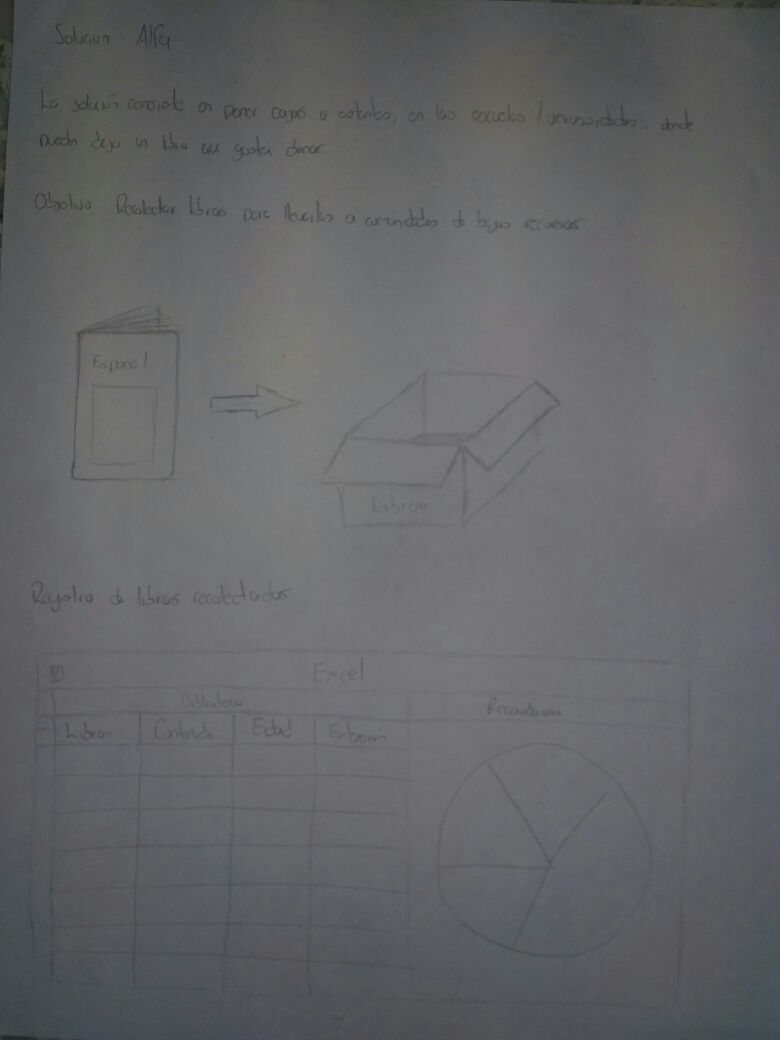 Solucion Alfa
La solución consiste en poner cajas o estantes, en las escuelas / universidades, donde
puedan dejar un libro que gusten donar.
Objetivo Recolectar libros para llevarlos a comunidades de bajos recursos
Español
Libros
Registro de libros recolectados
Excel
Biblioteca
Recaudacion
Libro Contenido Edad Extensión